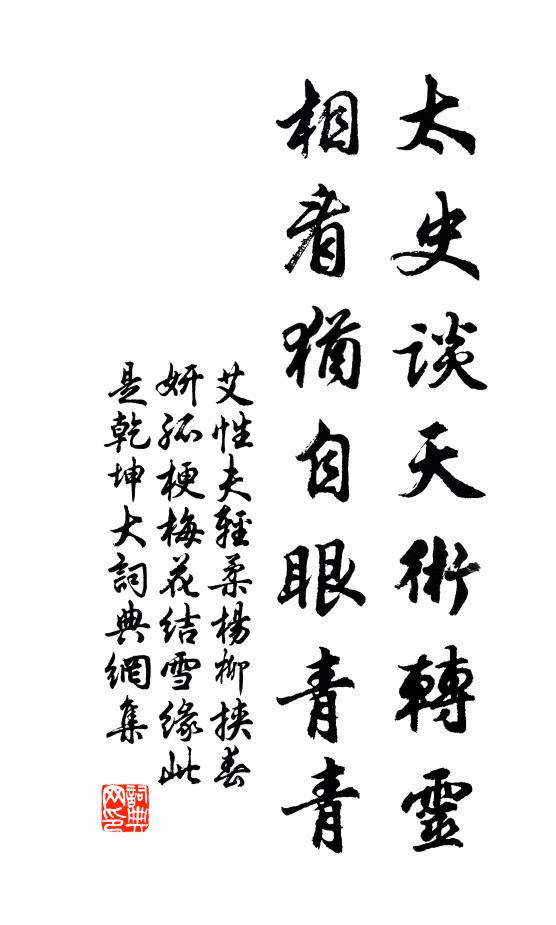 太史談天術轉靈
相看猶自眼青青
艾性夫輕柔楊柳挾春
妍孤梗梅花結雪緣此
是乾坤大詞典網集
詞典
网印